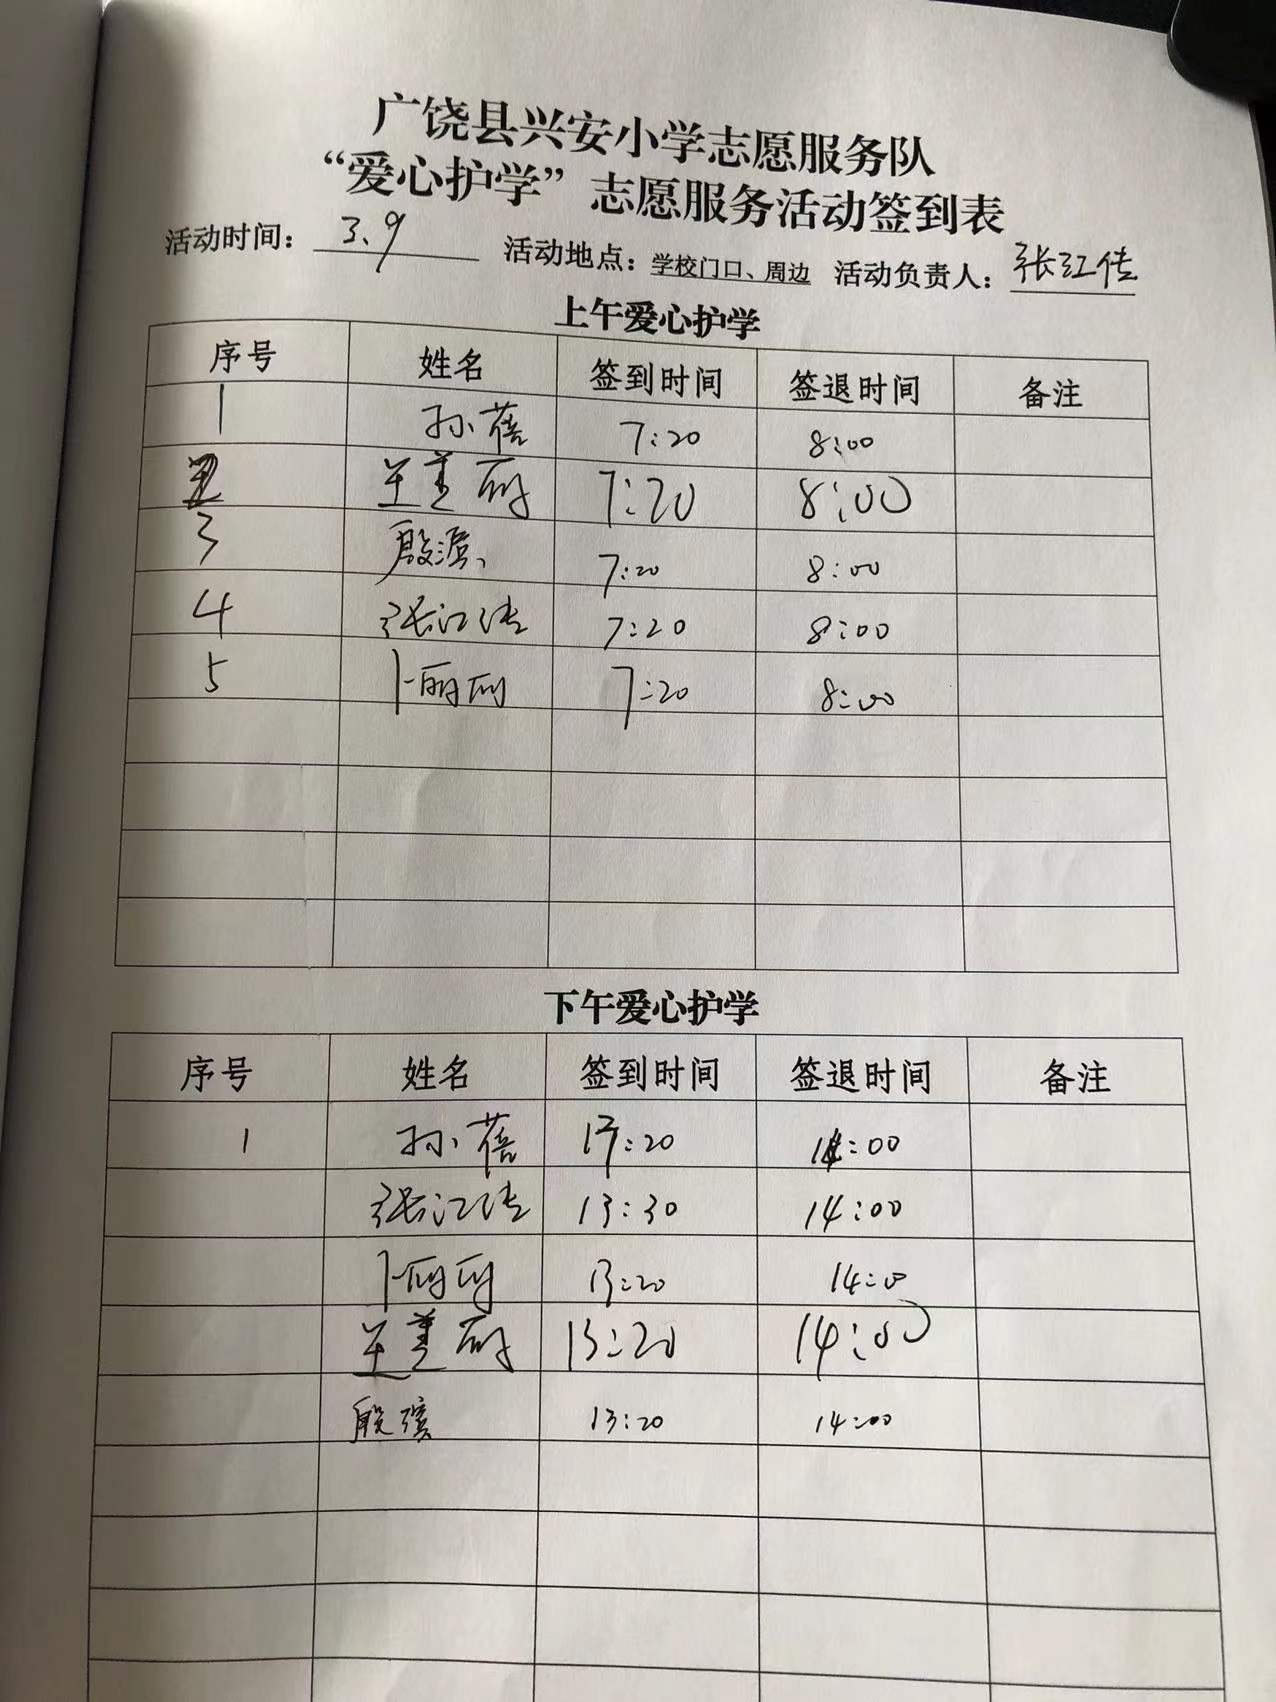 广饶县兴安小学志愿服务队
“爱心护学”志愿服务活动签到表
活动时间：3、9 活动地点：学校门口、周边 活动负责人：张江
上午爱心护学
序号 姓名 签到时间 签退时间 备注
1 孙蓓 7:20 8:00
2 美丽 7:20 8:00
3 殷 7:20 8:00
4 张江 7:20 8:00
5 卜丽丽 7:20 8:00
下午爱心护学
序号 姓名 签到时间 签退时间 备注
1 孙蓓 :20 14:00
张江 13:30 14:00
卜丽丽 13:20 14:00
美丽 13:20 14:00
殷 13:20 14:00